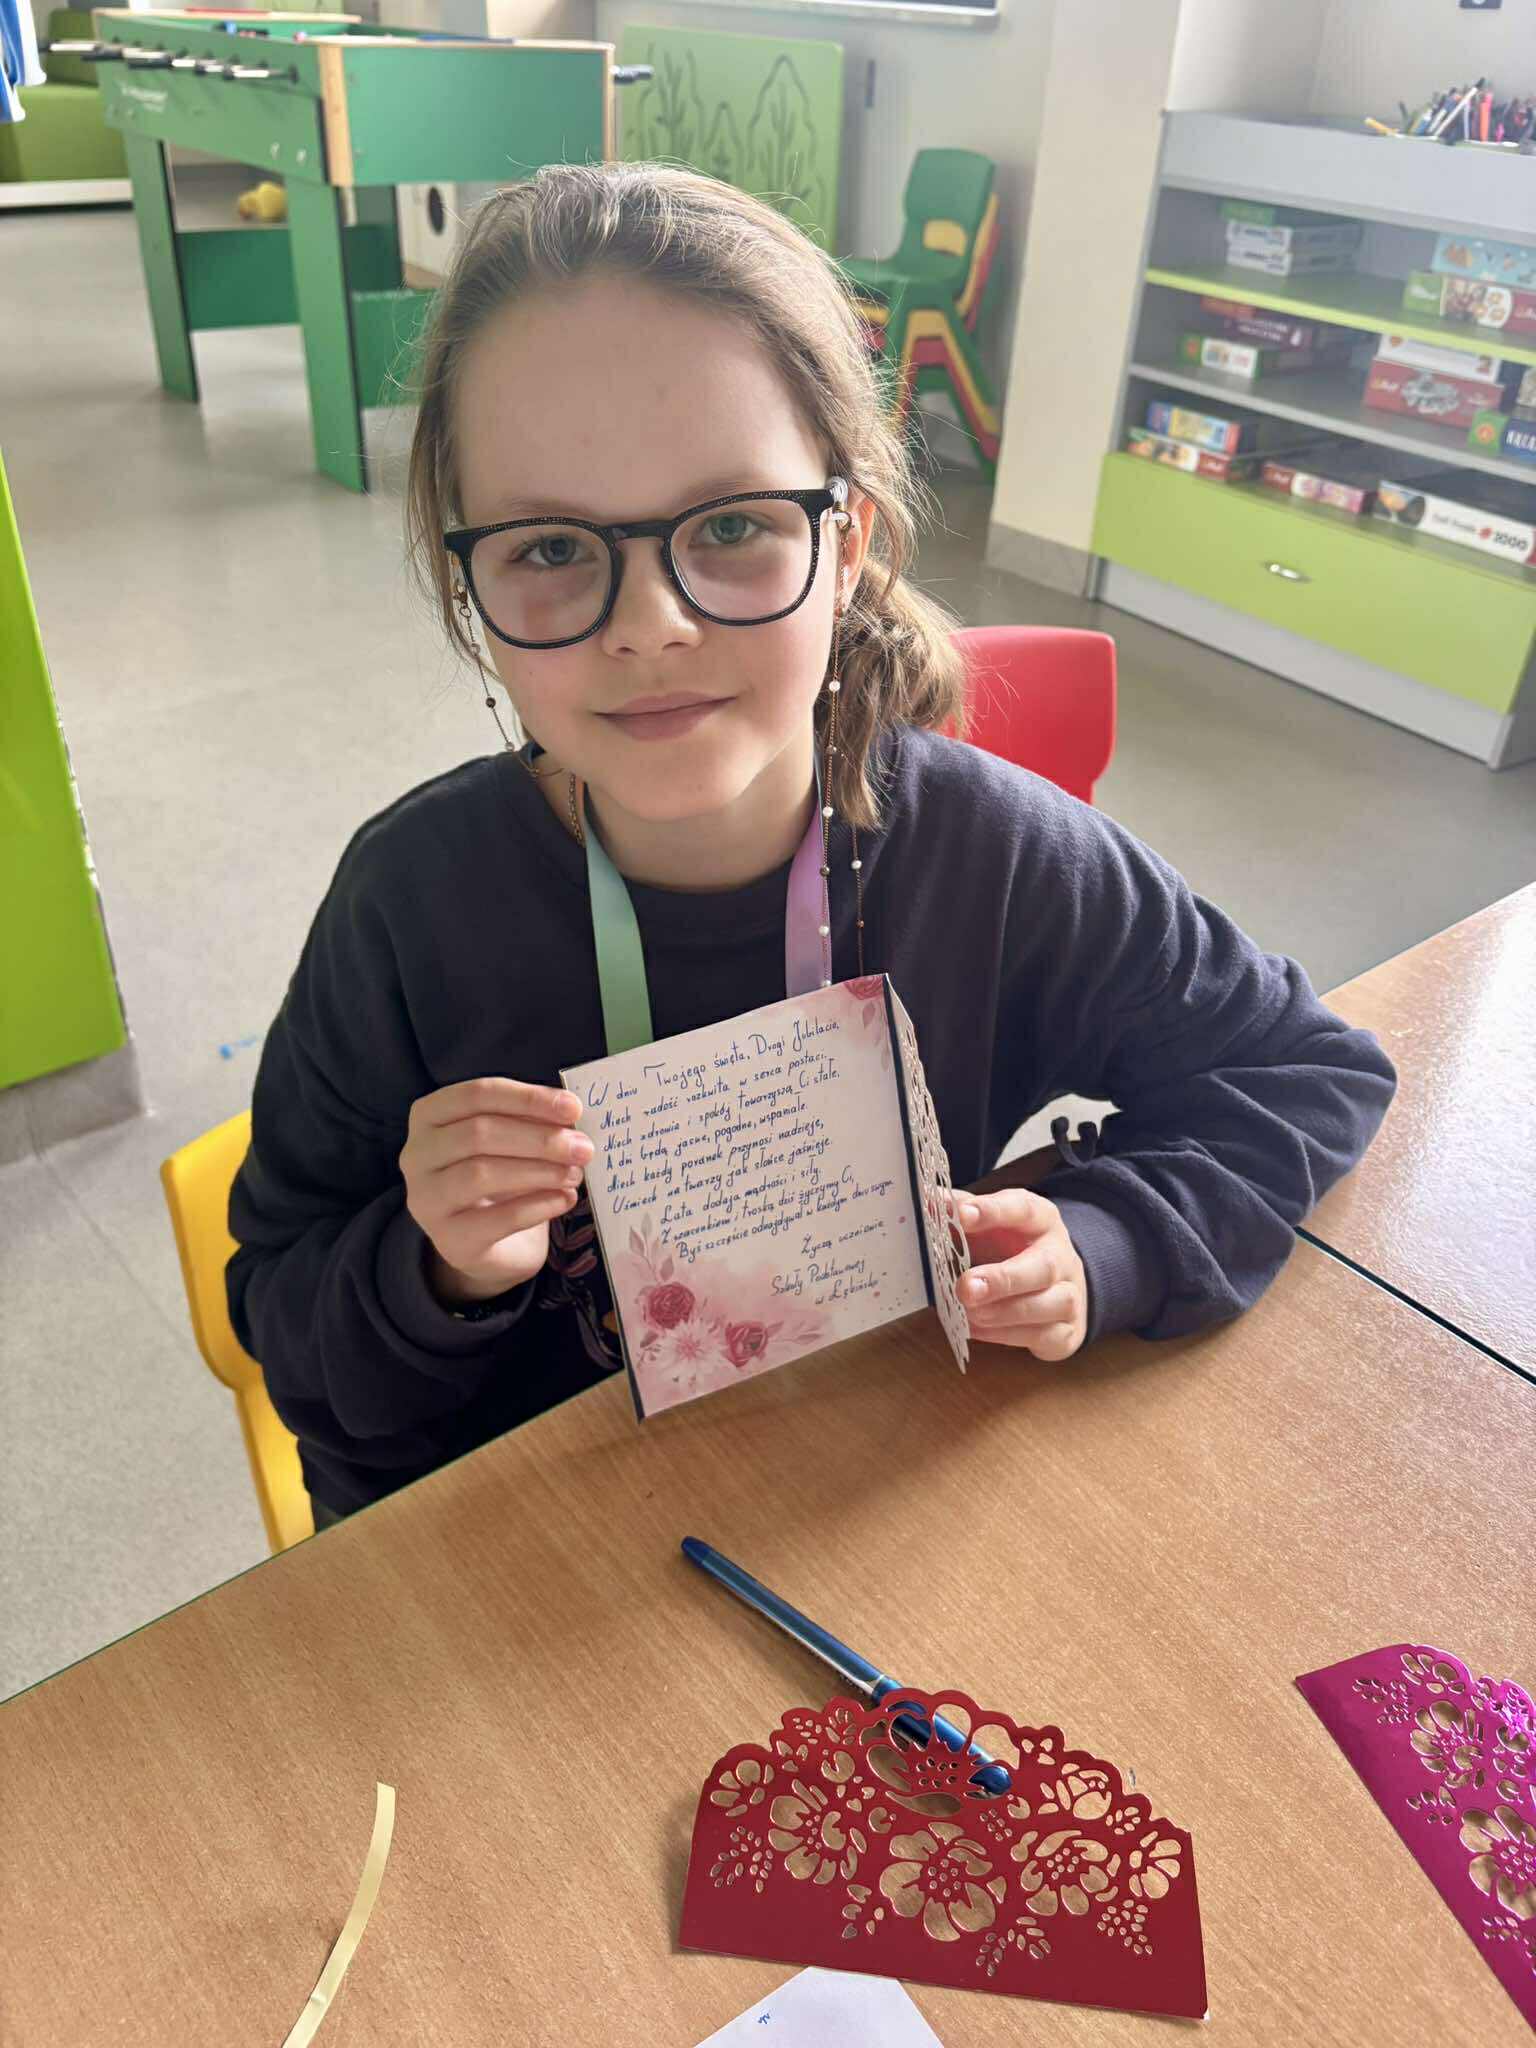 W dniu Twojego święta, Drogi Jubilacie,
Niech radość rozkwita w serca postaci.
Niech zdrowie i spokój towarzyszą Ci stale,
A dni będą jasne, pogodne, wspaniałe.
Niech każdy poranek przynosi nadzieję,
Uśmiech na twarzy jak słońce jaśnieje.
Lata dodają mądrości i siły.
Z szacunkiem i troską dziś życzymy Ci,
Byś szczęście odnajdywał w każdym dniu swym
Życzą uczniowie
Szkoły Podstawowej
w Łębińsku
1000